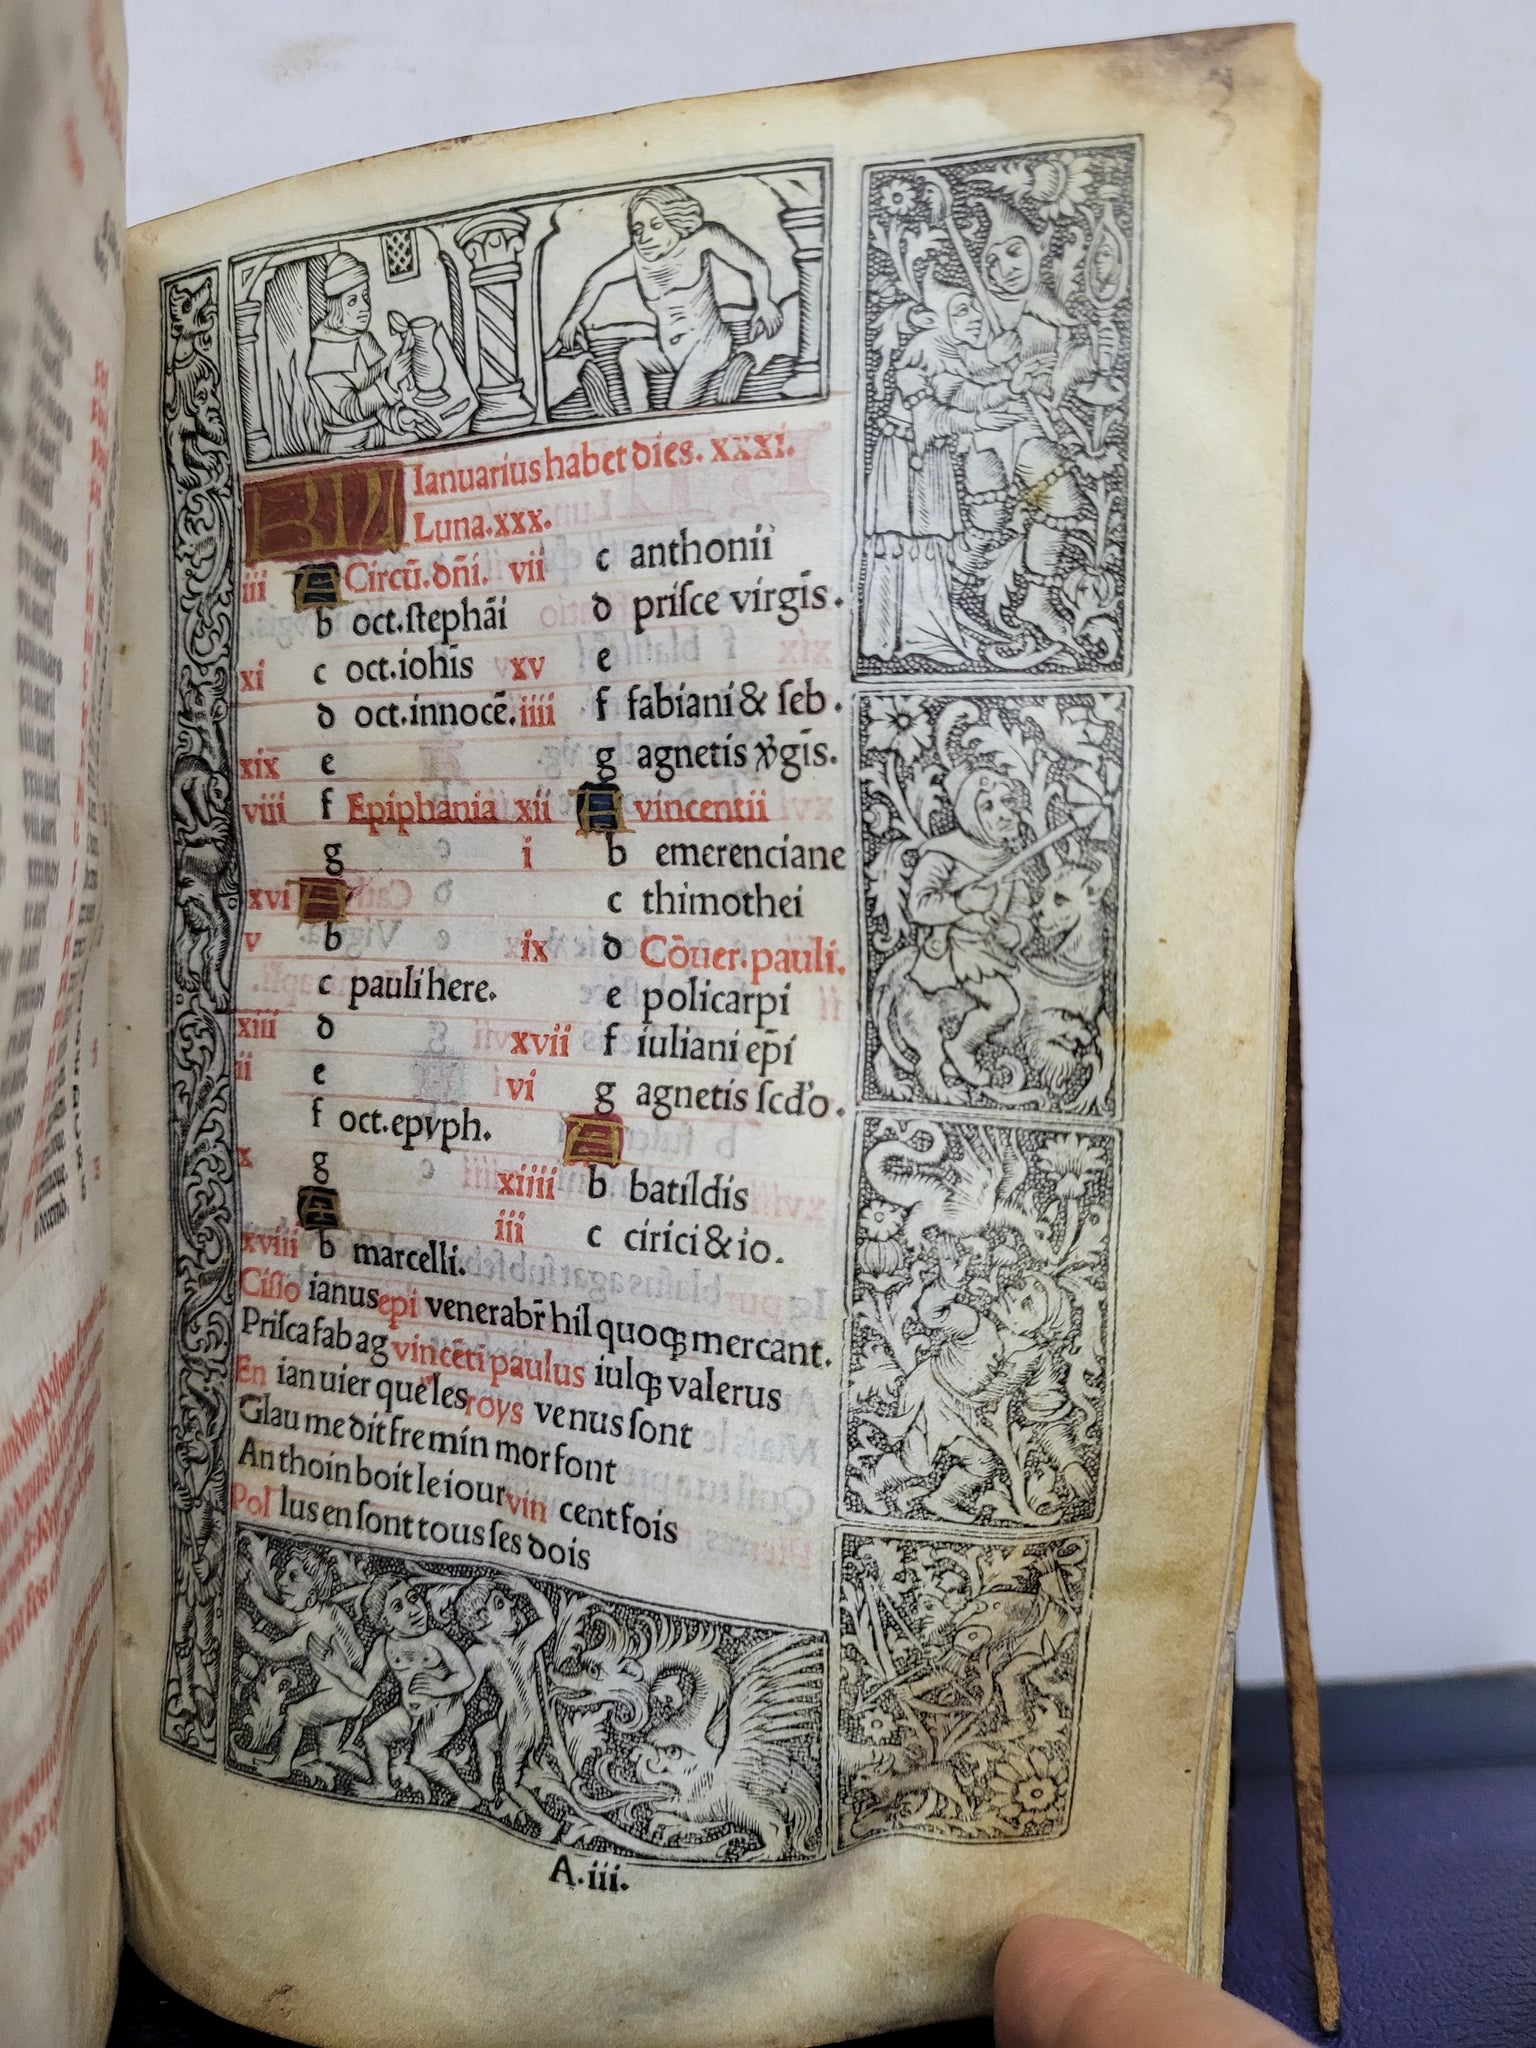 KL Ianuarius habet dies. xxxi.
Luna. xxx.
iii A Circū. dn̄i.
b oct. ſtephāi
xi c oct. iohīs
d oct. innocē.
xix e
viii f Epiphania
g
xvi A
v b
c pauli here.
xiii d
ii e
f oct. epyph.
x g
A
xviii b marcelli.
vii c anthonii
d priſce virgīs.
xv e
iiii f fabiani & ſeb.
g agnetis v̾gīs.
xii A vincentii
i b emerenciane
c thimothei
ix d Cōuer. pauli.
e policarpi
xvii f iuliani ep̄i
vi g agnetis ſcd̾o.
A
xiiii b batildis
iii c cirici & io.
Ciſio ianus epi venerabr̄ hil quoqꝫ mer cant.
Priſca fab ag vincēti paulus iulqꝫ valerus
En ian uier que les roys venus ſont
Glau me dit fre min mor font
An thoin boit le iour vin cent fois
Pol lus en ſont tous ſes dois
A.iii.